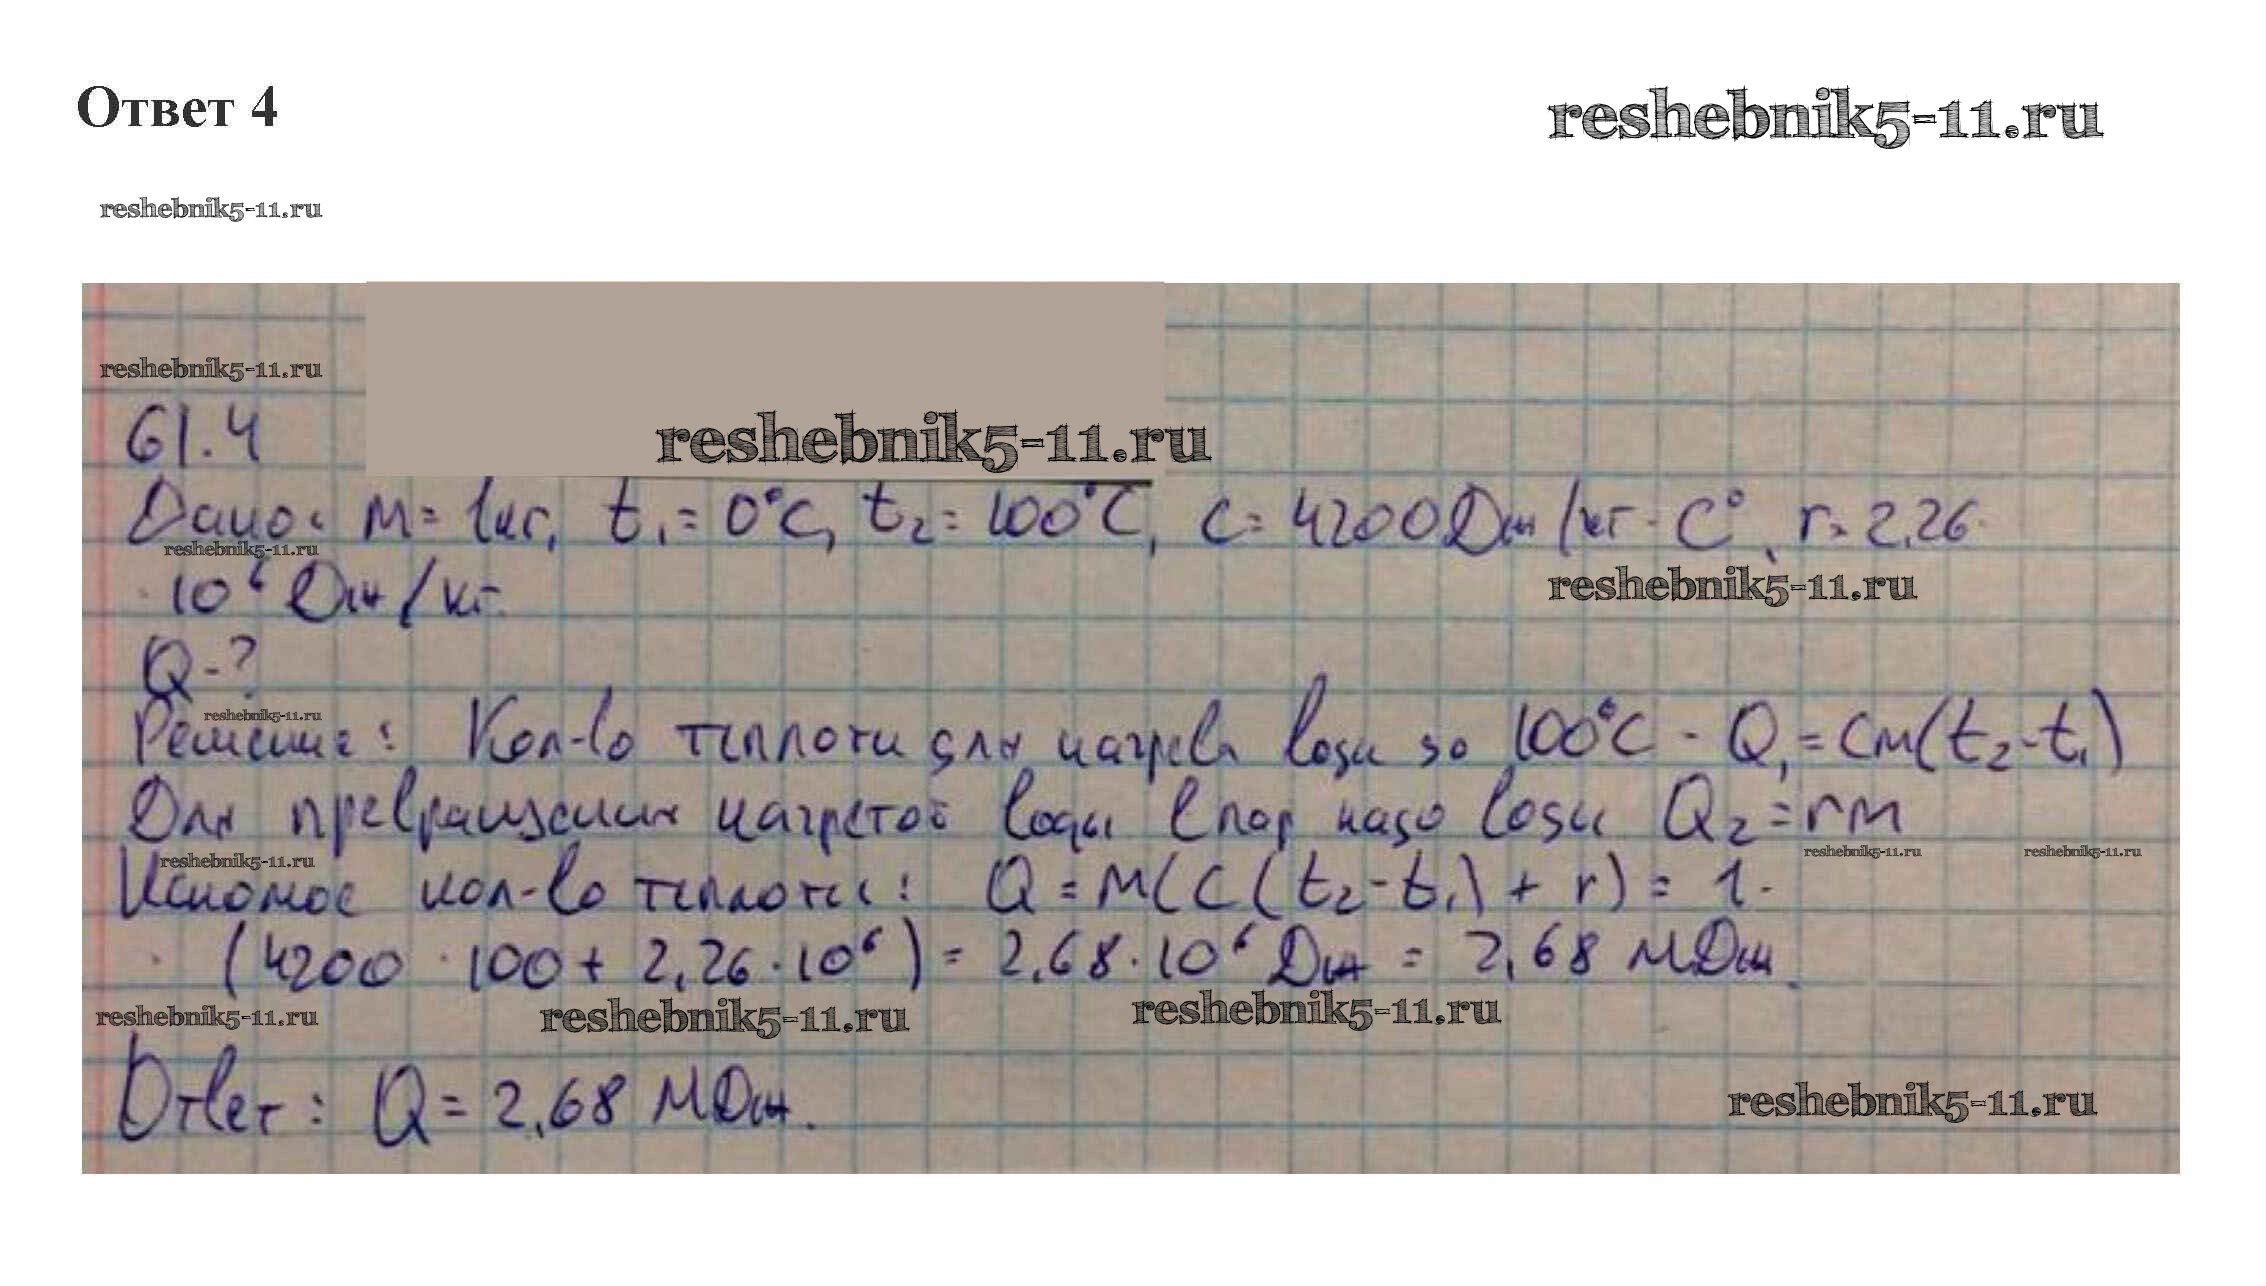 Ответ 4
reshebnik5-11.ru
reshebnik5-11.ru
reshebnik5-11.ru
61.4
reshebnik5-11.ru
Дано: m = 1кг, t₁ = 0°C, t₂ = 100°C, c = 4200Дж/кг·C°, r = 2,26·
reshebnik5-11.ru
·10⁶ Дж/кг.
reshebnik5-11.ru
Q-?
reshebnik5-11.ru
Решение: Кол-во теплоты для нагрева воды до 100°C - Q₁ = cm(t₂-t₁)
Для превращения нагретой воды в пар надо воды Q₂ = rm
reshebnik5-11.ru
reshebnik5-11.ru
reshebnik5-11.ru
Искомое кол-во теплоты: Q = m(c(t₂-t₁) + r) = 1·
· (4200 · 100 + 2,26·10⁶) = 2,68·10⁶ Дж = 2,68 МДж.
reshebnik5-11.ru
reshebnik5-11.ru
reshebnik5-11.ru
Ответ: Q = 2,68 МДж.
reshebnik5-11.ru